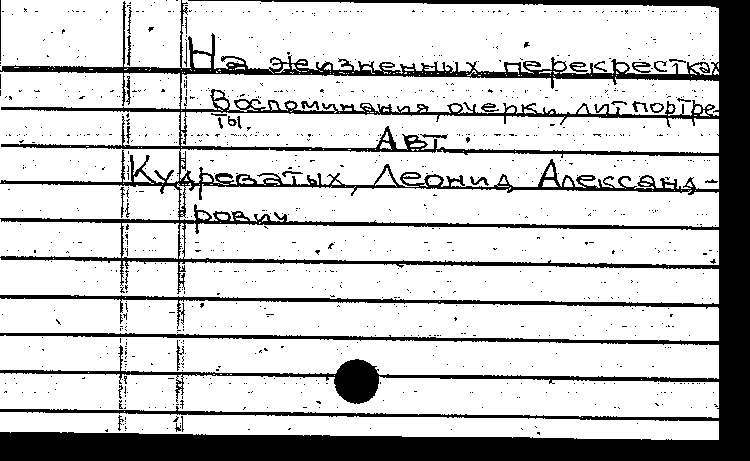 На жизненных перекрестках
Воспоминания, очерки, лит портре-
ты.
Авт.:
Кудреватых, Леонид Александ-
рович